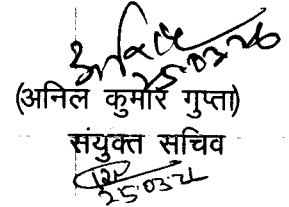 अनिल
25.03.26
(अनिल कुमार गुप्ता)
संयुक्त सचिव
25.03.26